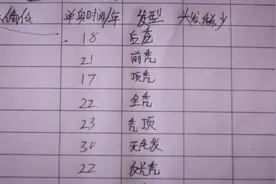 偏低 单身时间/年 发型 头发稀少
18 后秃
21 前秃
17 顶秃
22 全秃
23 秃顶
30 无毛发
22 反光秃